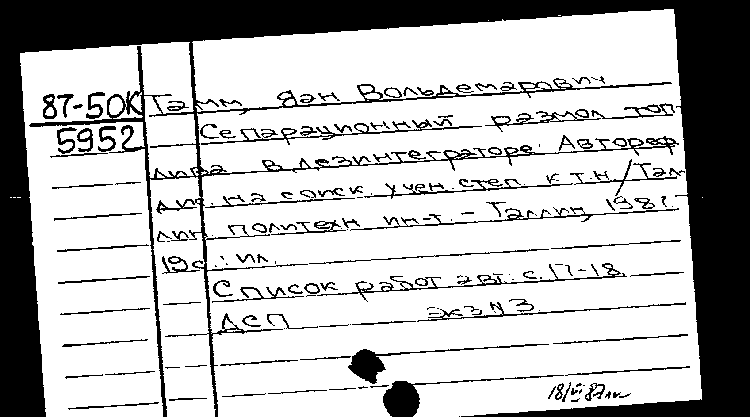 87-50К Тамм, Яан Вольдемарович
5952 Сепарационный размол топ-
лива в дезинтеграторе: Автореф.
дис. на соиск. учен. степ. к.т.н. / Тал-
лин. политехн. ин-т. - Таллин,
19с.: ил.
Список работ авт.: с. 17-18.
ДСП экз N 3